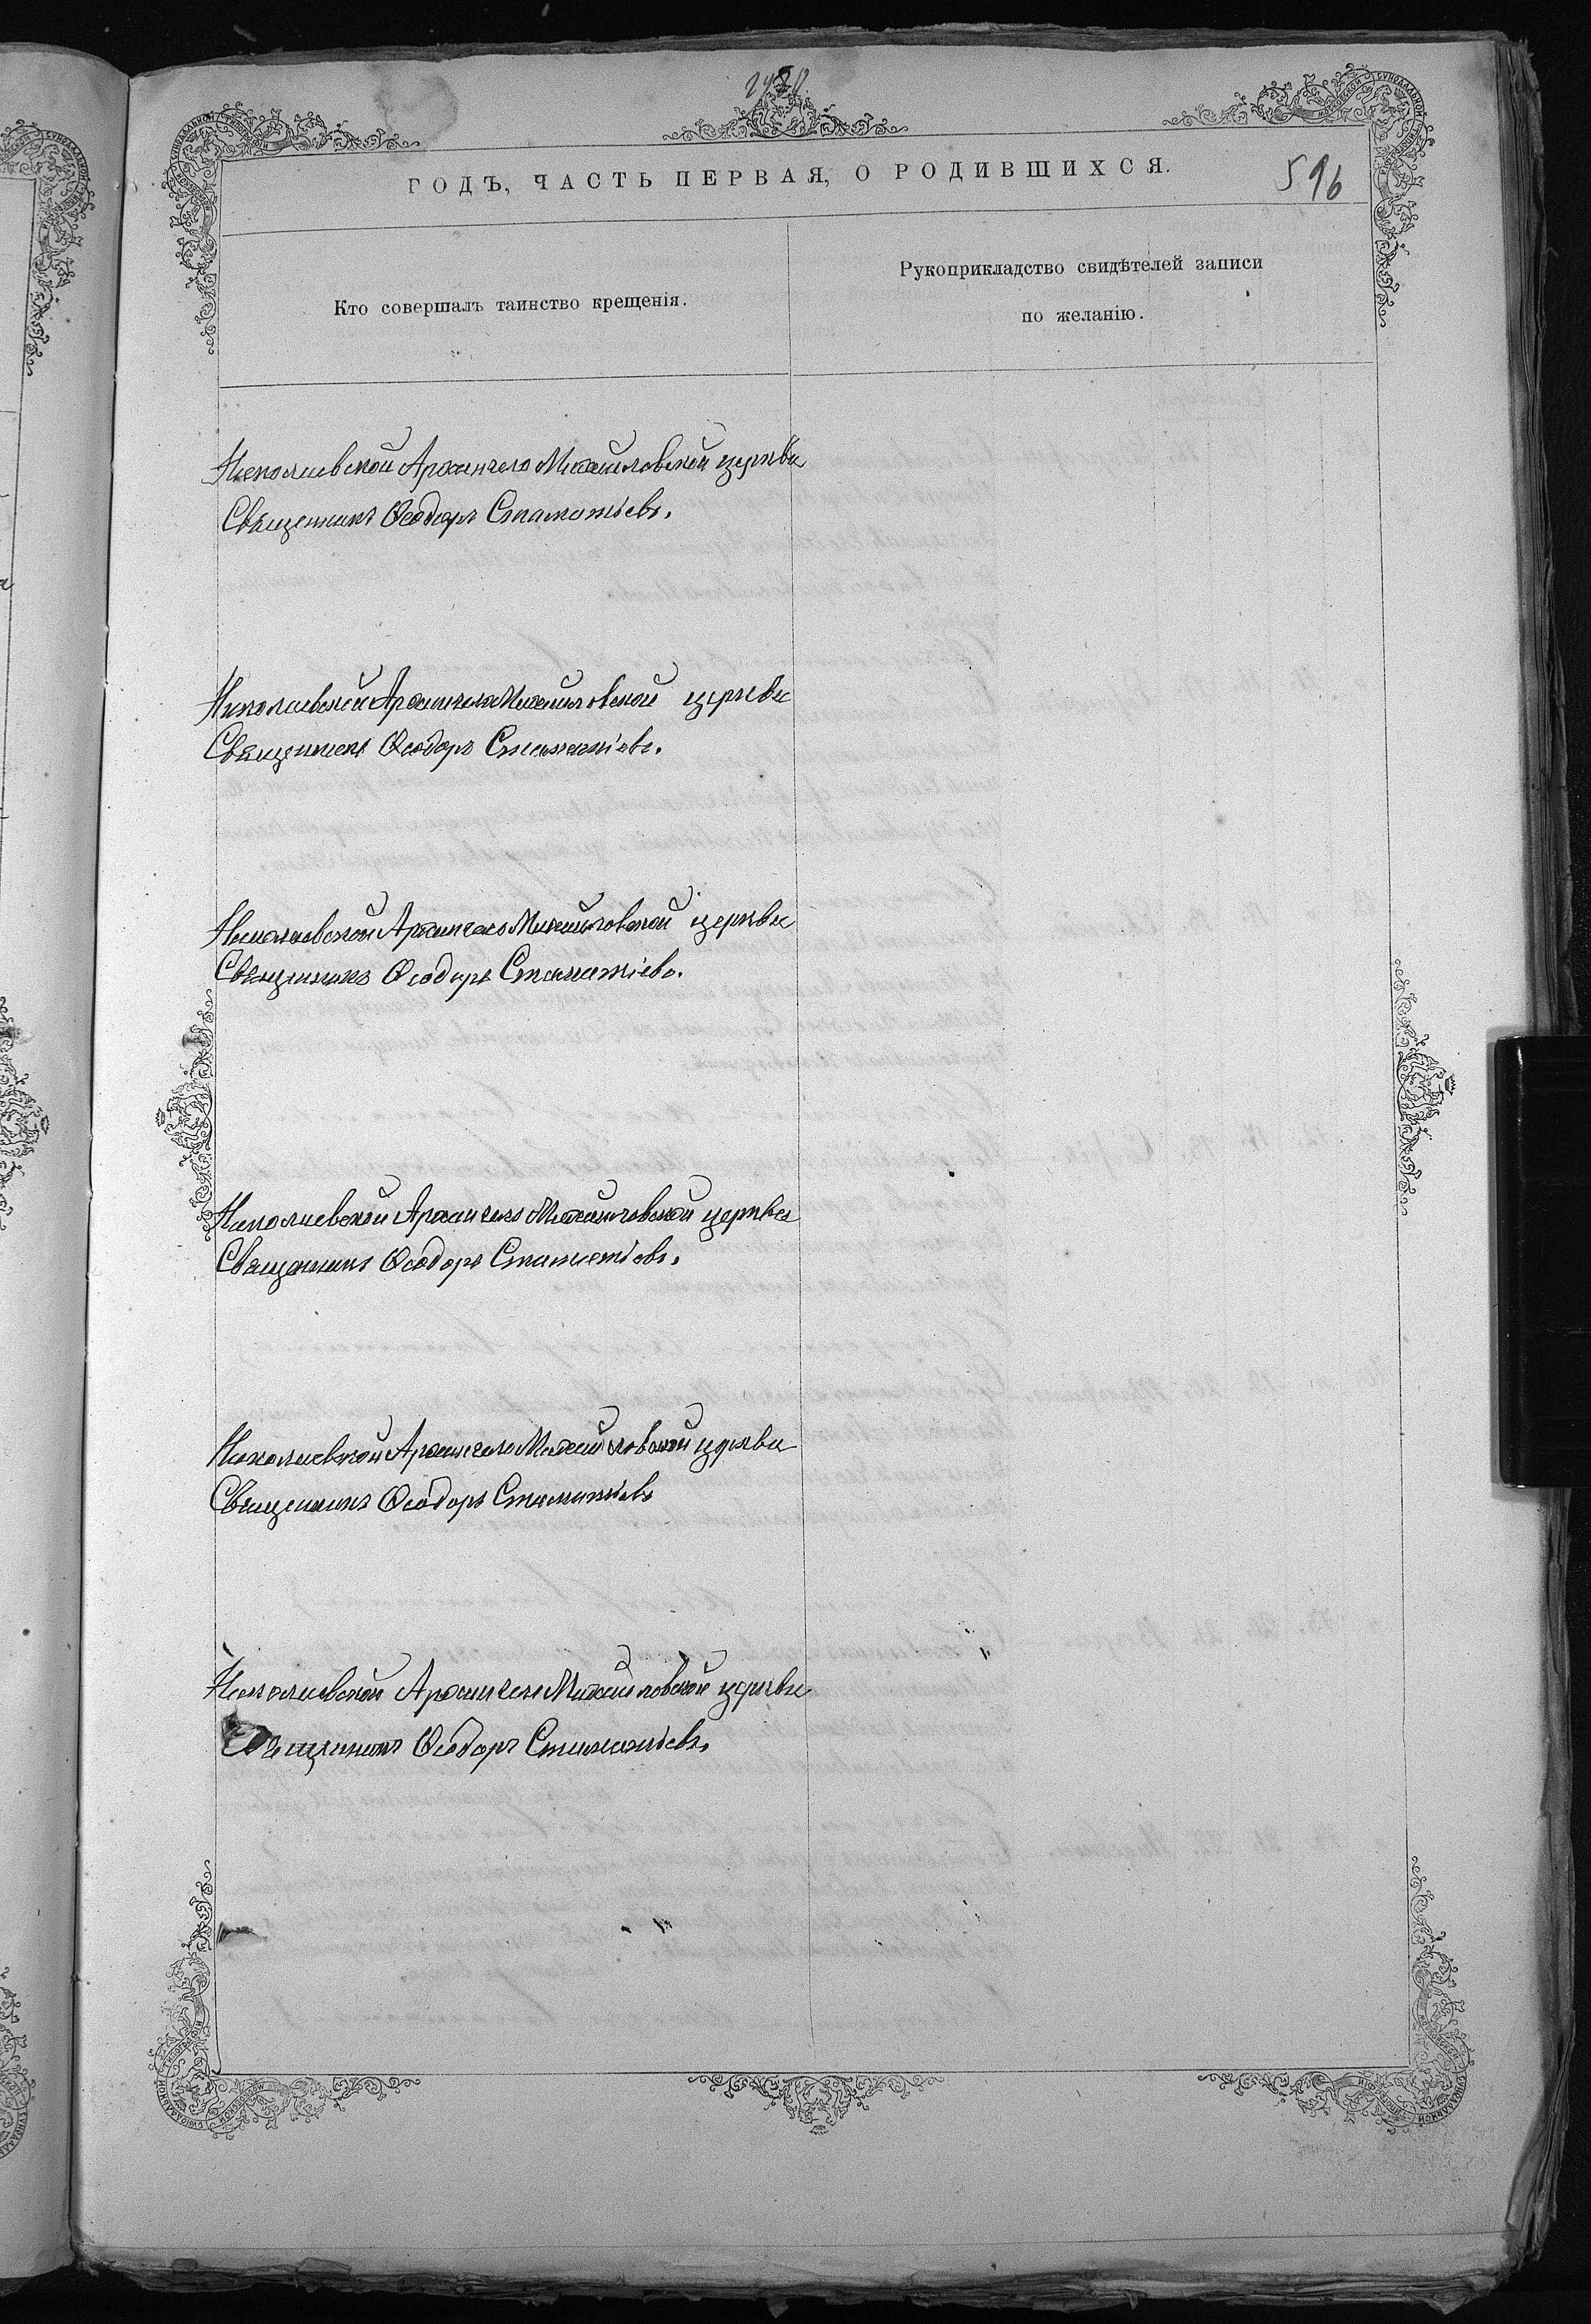 ГОДЪ, ЧАСТЬ ПЕРВАЯ, О РОДИВШИХСЯ.
596
Кто совершалъ таинство крещенія.
Рукоприкладство свидѣтелей записи
по желанію.
Николаевской Архангело Михайловской церкви
Священникъ Ѳеодоръ Стаматьевъ.
Николаевской Архангело Михайловской церкви
Священникъ Ѳеодоръ Стаматіевъ.
Николаевской Архангело Михайловской церкви
Священникъ Ѳеодоръ Стаматіевъ.
Николаевской Архангело Михайловской церкви
Священникъ Ѳеодоръ Стаматіевъ.
Николаевской Архангело Михайловской церкви
Священникъ Ѳеодоръ Стаматіевъ
Николаевской Архангело Михайловской церкви
Священникъ Ѳеодоръ Стаматіевъ.